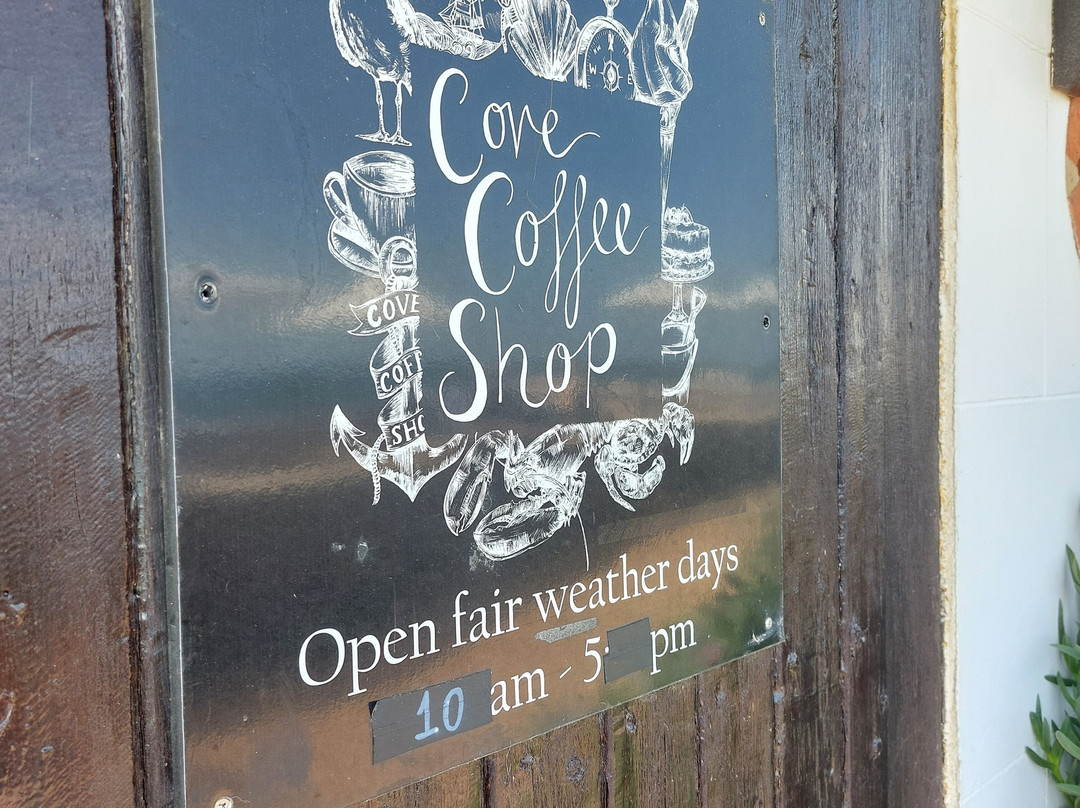 Cove
Coffee
Shop
COVE
COFF
SHO
Open fair weather days
10 am - 5 pm